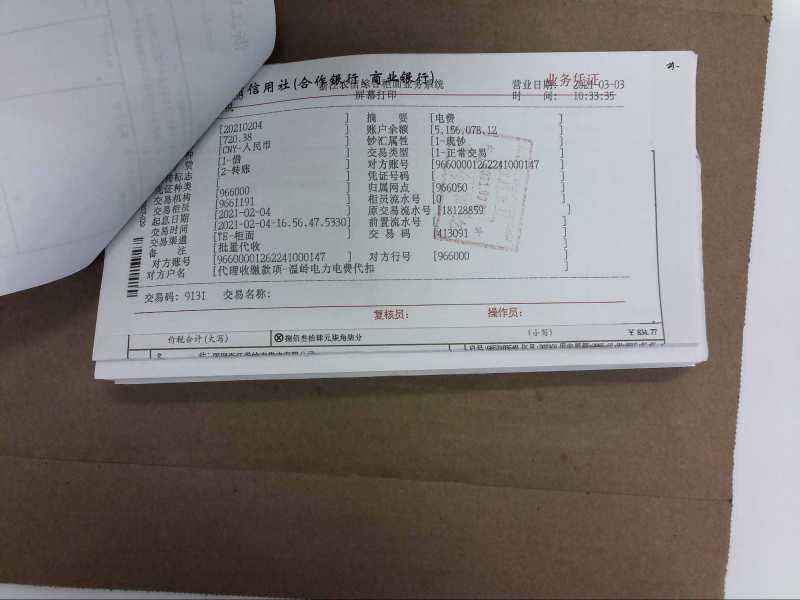 信用社(合作银行、商业银行)
业务凭证
浙江农信综合柜面业务系统
营业日期: 2021-03-03
屏幕打印
时 间: 10:33:35
[20210204 ] 摘 要 [电费 ]
[720.38 ] 账户余额 [5,156,078.12 ]
[CNY-人民币 ] 钞汇属性 [1-现钞 ]
[1-借 ] 交易类型 [1-正常交易 ]
标志 [2-转账 ] 对方账号 [966000012622410001​47 ]
凭证号码 [ ]
凭证种类 [966000 ] 归属网点 [966050 ]
交易机构 [9661191 ] 柜员流水号 [0 ]
交易柜员
起息日期 [2021-02-04 ] 原交易流水号 [18128859 ]
交易时间 [2021-02-04-16.56.47.5330] 前置流水号 [ ]
交易渠道 [TE-柜面 ] 交 易 码 [413091 ]
备 注 [批量代收 ]
对方账号 [96600001262241000147 ] 对方行号 [966000 ]
对方户名 [代理收缴款项-温岭电力电费代扣 ]
交易码: 9131 交易名称:
复核员: 操作员:
价税合计(大写) ⊗捌佰叁拾肆元柒角柒分 (小写) ¥ 834.77